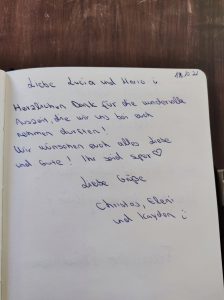 Liebe Lucia und Mario :
Herzlichen Dank für die wundervolle
Auszeit, die wir uns bei euch
nehmen durften!
Wir wünschen euch alles Liebe
und Gute! Ihr seid super♡
Liebe Grüße
Christos, Eleni
und Kaydon :